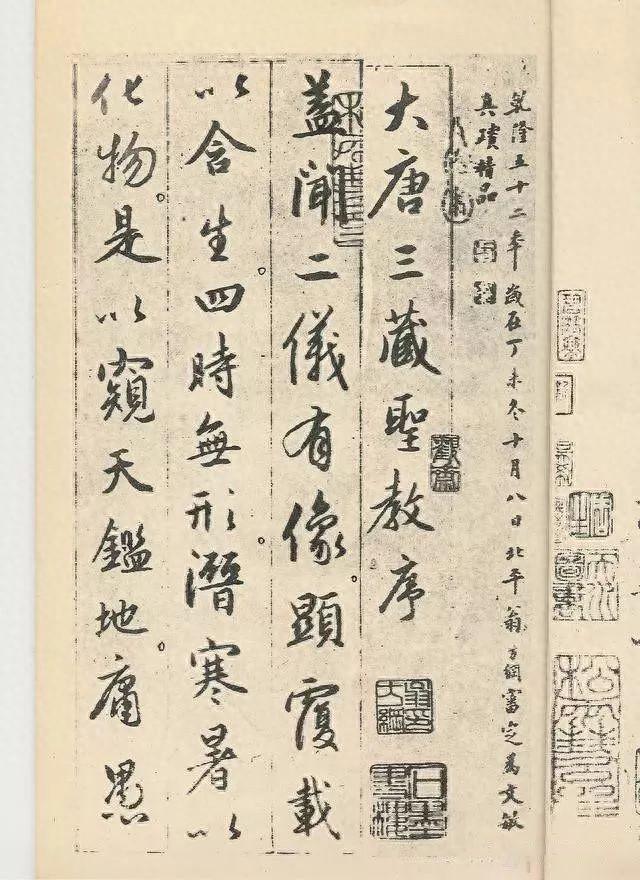 乾隆五十二年歲在丁未冬十月八日北平翁方綱審定爲文敏
真蹟精品
大唐三藏聖教序
蓋聞二儀有像。顯覆載
以含生。四時無形。潛寒暑以
化物。是以窺天鑑地。庸愚